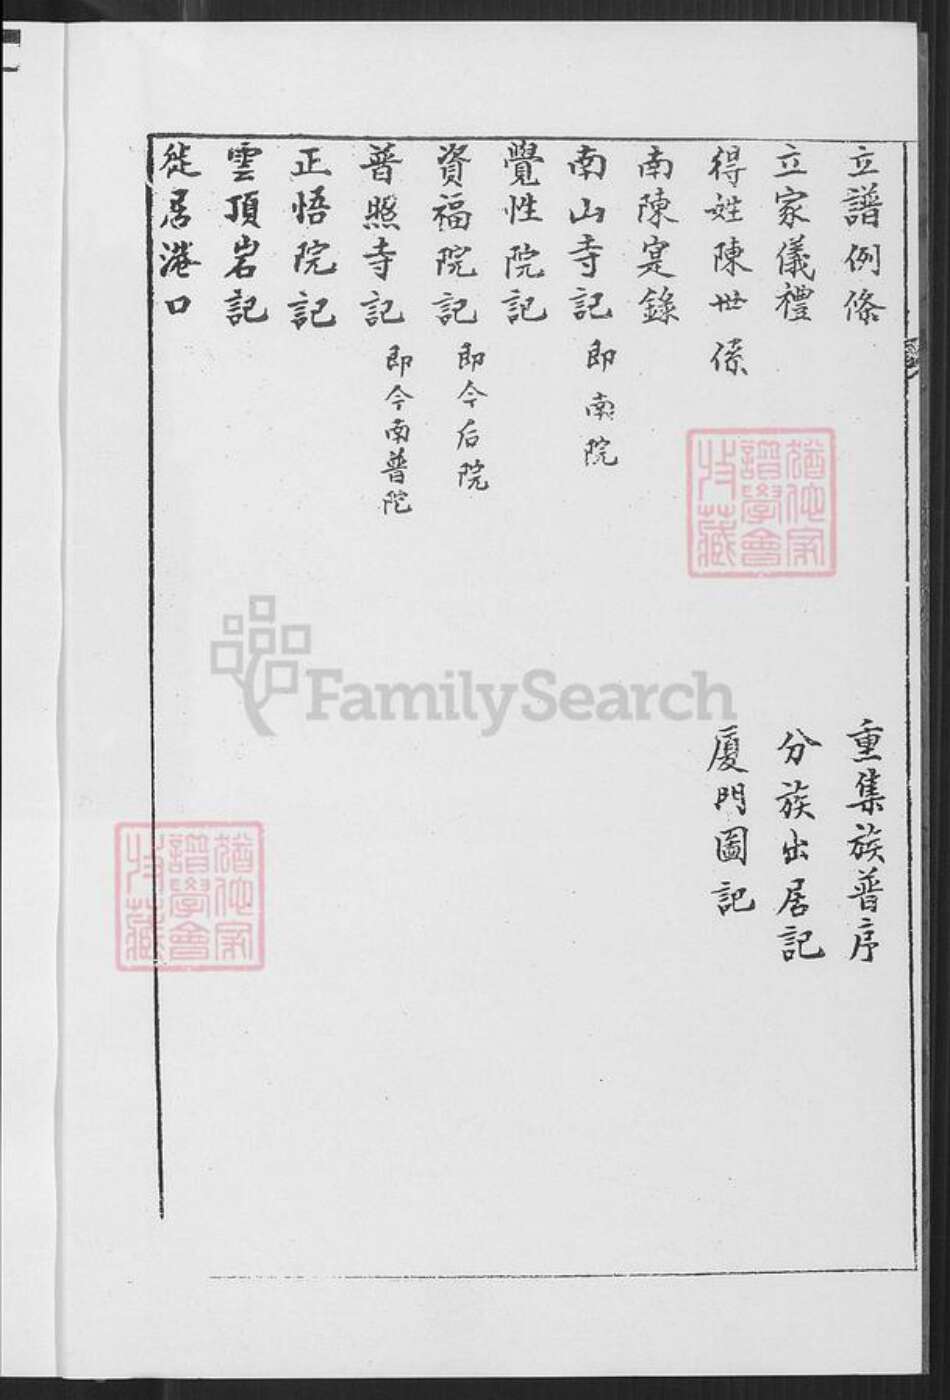 立譜例條
重集族普序
立家儀禮
分族出居記
得姓陳世係
厦門圖記
南陳寔錄
南山寺記 即南院
覺性院記
資福院記 即今后院
普照寺記 即今南普陀
正悟院記
雲頂岩記
徙居港口
FamilySearch
譜學會
收藏
譜學會
收藏